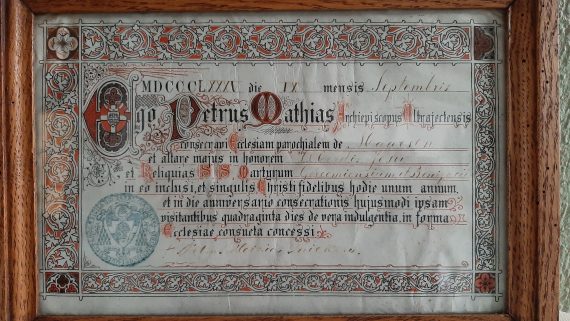 MDCCCLXXXIX die IX mensis Septembris
Ego Petrus Mathias Archiepiscopus Ultrajectensis
consecravi Ecclesiam parochialem de Maarssen
et altare majus in honorem
et Reliquias SS. Martyrum Gorcumiensium et Bonifacii
in eo inclusi, et singulis Christi fidelibus hodie unum annum,
et in die anniversario consecrationis hujusmodi ipsam
visitantibus quadraginta dies de vera indulgentia, in forma
Ecclesiae consueta concessi.